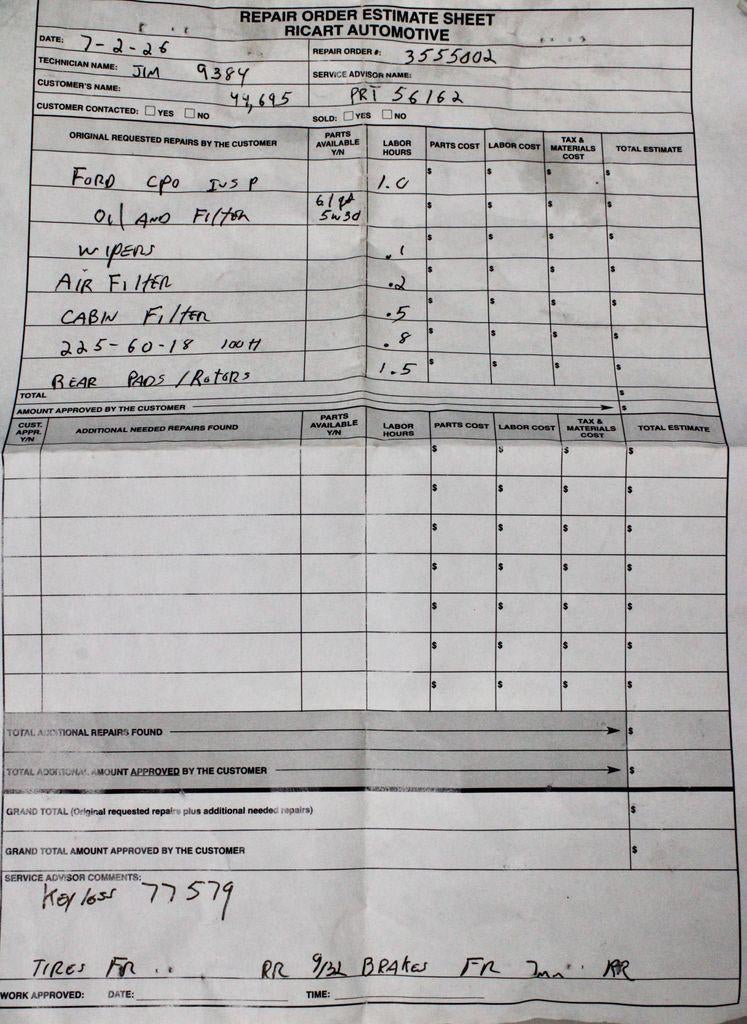 REPAIR ORDER ESTIMATE SHEET
RICART AUTOMOTIVE
DATE: 7-2-26
REPAIR ORDER #: 3555002
TECHNICIAN NAME: JIM 9384
SERVICE ADVISOR NAME:
CUSTOMER'S NAME: 44,695
PRT 56162
CUSTOMER CONTACTED: ☐ YES ☐ NO
SOLD: ☐ YES ☐ NO
ORIGINAL REQUESTED REPAIRS BY THE CUSTOMER PARTS AVAILABLE Y/N LABOR HOURS PARTS COST LABOR COST TAX & MATERIALS COST TOTAL ESTIMATE
FORD CPO INSP 1.0 $ $ $ $
OIL AND FILTER 6/qt 5w30 $ $ $ $
WIPERS .1 $ $ $ $
AIR FILTER .2 $ $ $ $
CABIN FILTER .5 $ $ $ $
225-60-18 100H .8 $ $ $ $
REAR PADS/ROTORS 1.5 $ $ $ $
TOTAL $
AMOUNT APPROVED BY THE CUSTOMER $
CUST. APPR. Y/N ADDITIONAL NEEDED REPAIRS FOUND PARTS AVAILABLE Y/N LABOR HOURS PARTS COST LABOR COST TAX & MATERIALS COST TOTAL ESTIMATE
$ $ $ $
$ $ $ $
$ $ $ $
$ $ $ $
$ $ $ $
$ $ $ $
$ $ $ $
TOTAL ADDITIONAL REPAIRS FOUND $
TOTAL ADDITIONAL AMOUNT APPROVED BY THE CUSTOMER $
GRAND TOTAL (Original requested repairs plus additional needed repairs) $
GRAND TOTAL AMOUNT APPROVED BY THE CUSTOMER $
SERVICE ADVISOR COMMENTS:
Keyless 77579
TIRES FR RR 9/32 BRAKES FR 7mm RR
WORK APPROVED: DATE: TIME: